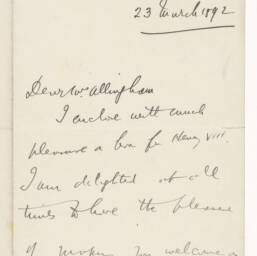 23 March 1892
Dear Mrs Allingham
I enclose with much
pleasure a box for Henry VIII.
I am delighted at all
times to have the pleasure
of making you welcome